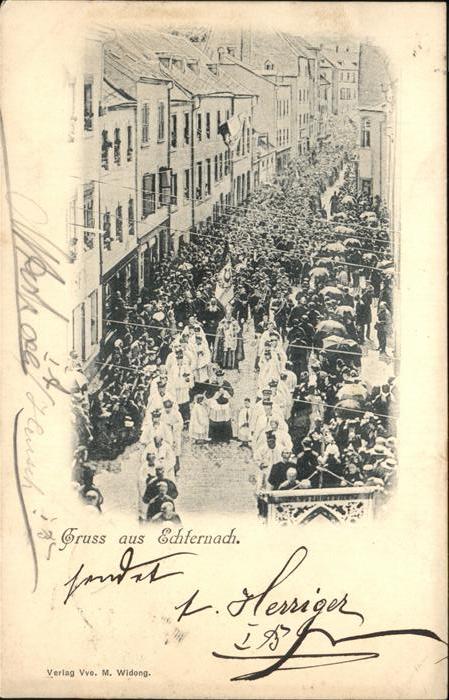 Gruss aus Echternach.
sendet
t. Herriger
I B
Verlag Vve. M. Widong.